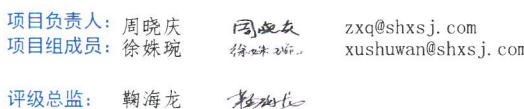 项目负责人： 周晓庆 周晓庆 zxq@shxsj.com
项目组成员： 徐姝琬 徐姝琬 xushuwan@shxsj.com
评级总监： 鞠海龙 鞠海龙